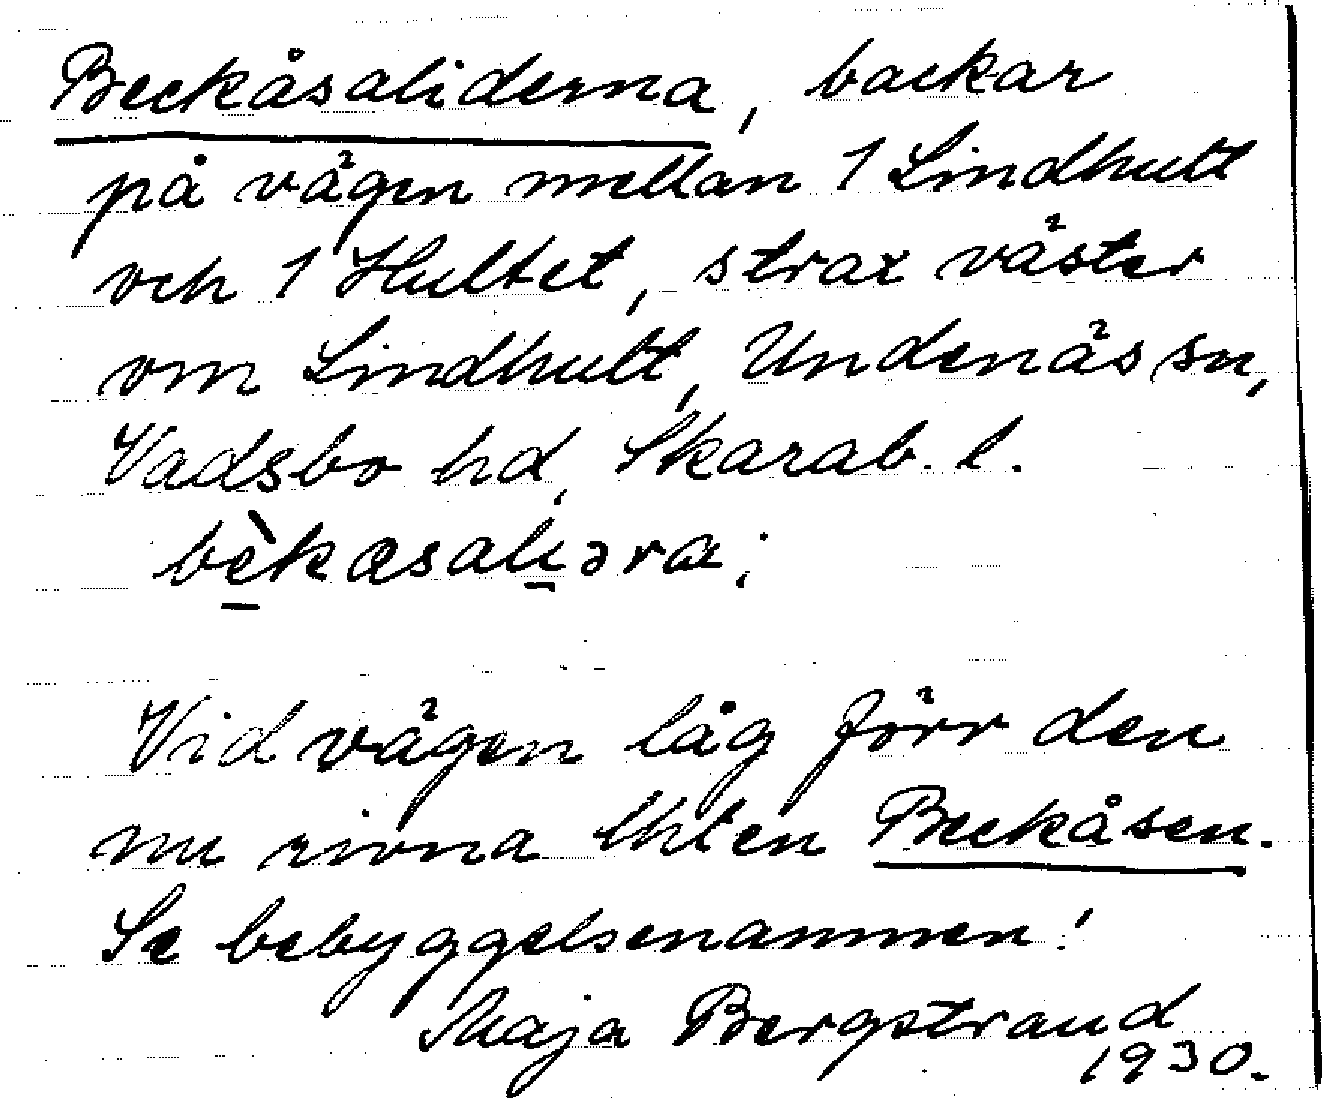 Beckåsaliderna, backar
på vägen mellan 1 Lindhult
och 1 Hultet, strax väster
om Lindhult, Undenäs sn,
Vadsbo hd, Skarab. l.
bèkæsaliəra;
Vid vägen låg förr den
nu rivna lht en Beckåsen.
Se bebyggelsenamnen!
Maja Bergstrand
1930.